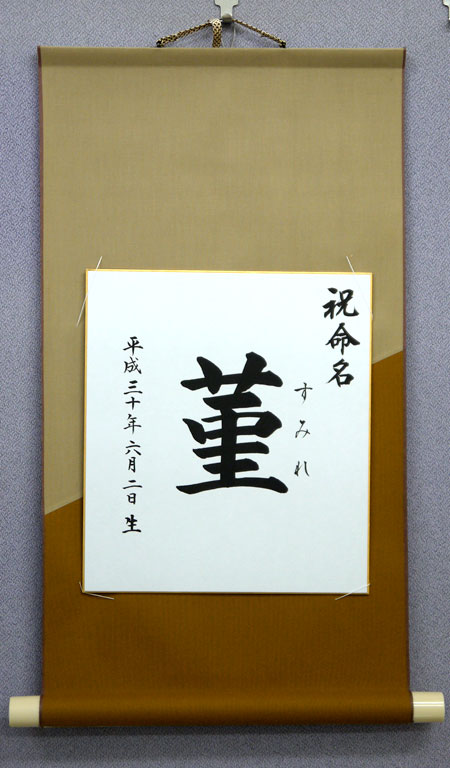 祝命名
すみれ
菫
平成三十年六月二日生